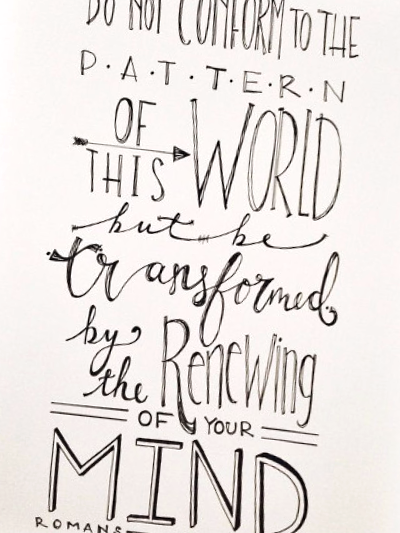 DO NOT CONFORM TO THE
P·A·T·T·E·R·N
OF
THIS WORLD
but be
transformed
by
the Renewing
OF YOUR
MIND
ROMANS